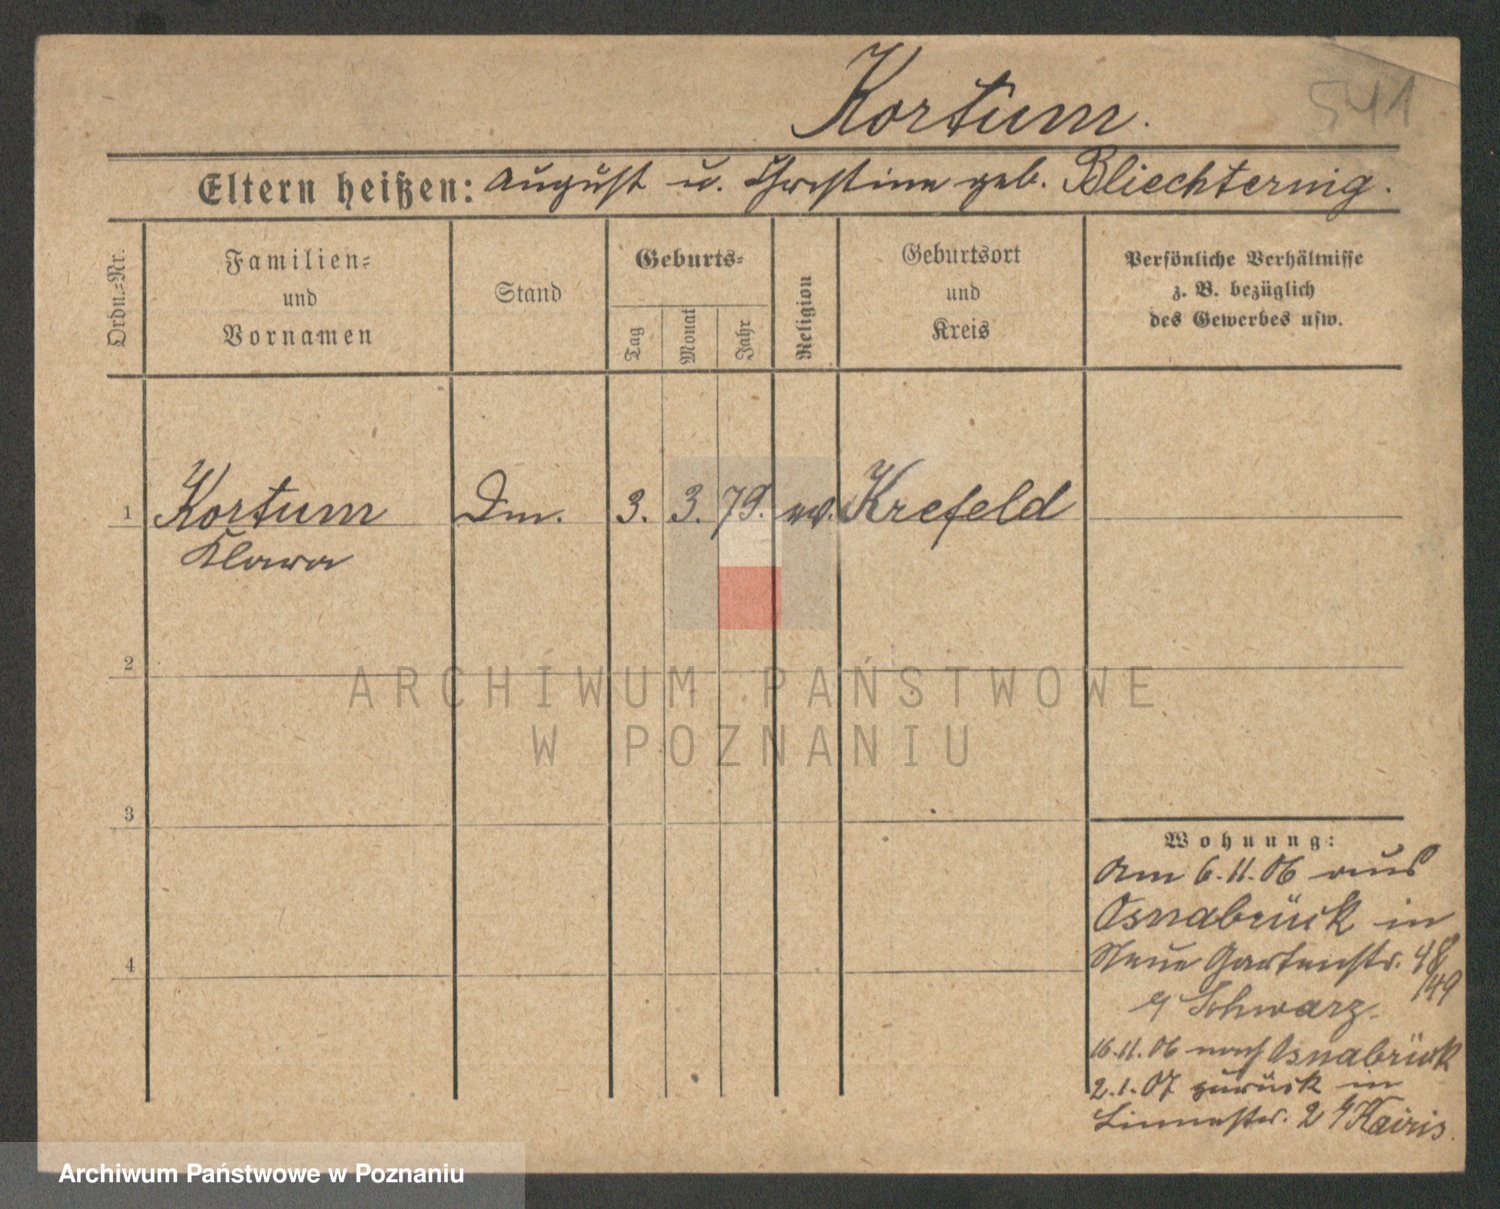 Kortum.
541
Eltern heißen: August u. Christine geb. Bliechternig.
Ordn.-Nr.
Familien-
und
Vornamen
Stand
Geburts-
Tag
Monat
Jahr
Religion
Geburtsort
und
Kreis
Persönliche Verhältnisse
z. B. bezüglich
des Gewerbes usw.
1 Kortum 3. 3. 79. ev. Krefeld
Klara
2
ARCHIWUM PAŃSTWOWE
W POZNANIU
3
Wohnung:
Am 6.11.06 aus
Osnabrück in
Neue Gartenstr. 48
/49
Schwarz.
4
16.11.06 nach Osnabrück
2.1.07 zurück in
2 Kairis.
Archiwum Państwowe w Poznaniu